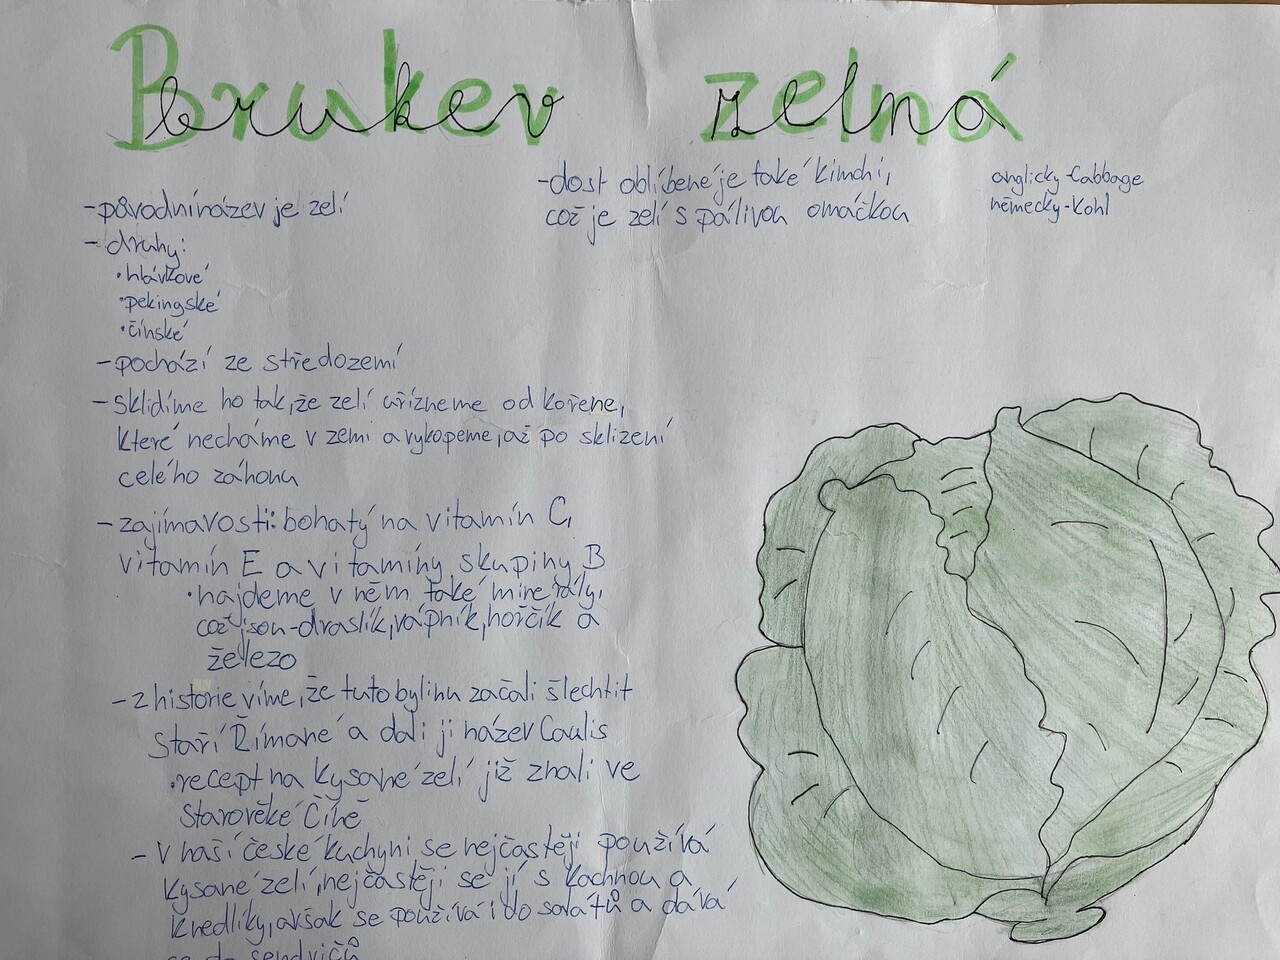 Brukev zelná
- původní název je zelí
- druhy:
• hlávkové
• pekingské
• čínské
- pochází ze středozemí
- sklidíme ho tak, že zelí uřízneme od kořene,
které necháme v zemi a vykopeme, až po sklizení
celého záhonu
- zajímavosti: bohatý na vitamín C,
vitamín E a vitamíny skupiny B
• najdeme v něm také minerály,
což jsou - draslík, vápník, hořčík a
železo
- z historie víme, že tuto bylinu začali šlechtit
staří Římané a dali jí název Caulis
• recept na kysané zelí již znali ve
starověké Číně
- V naší české kuchyni se nejčastěji používá
kysané zelí, nejčastěji se jí s kachnou a
knedlíky, avšak se používá i do salátů a dává
se do sendvičů
- dost oblíbené je také kimchi,
což je zelí s pálivou omáčkou
anglicky - Cabbage
německy - Kohl